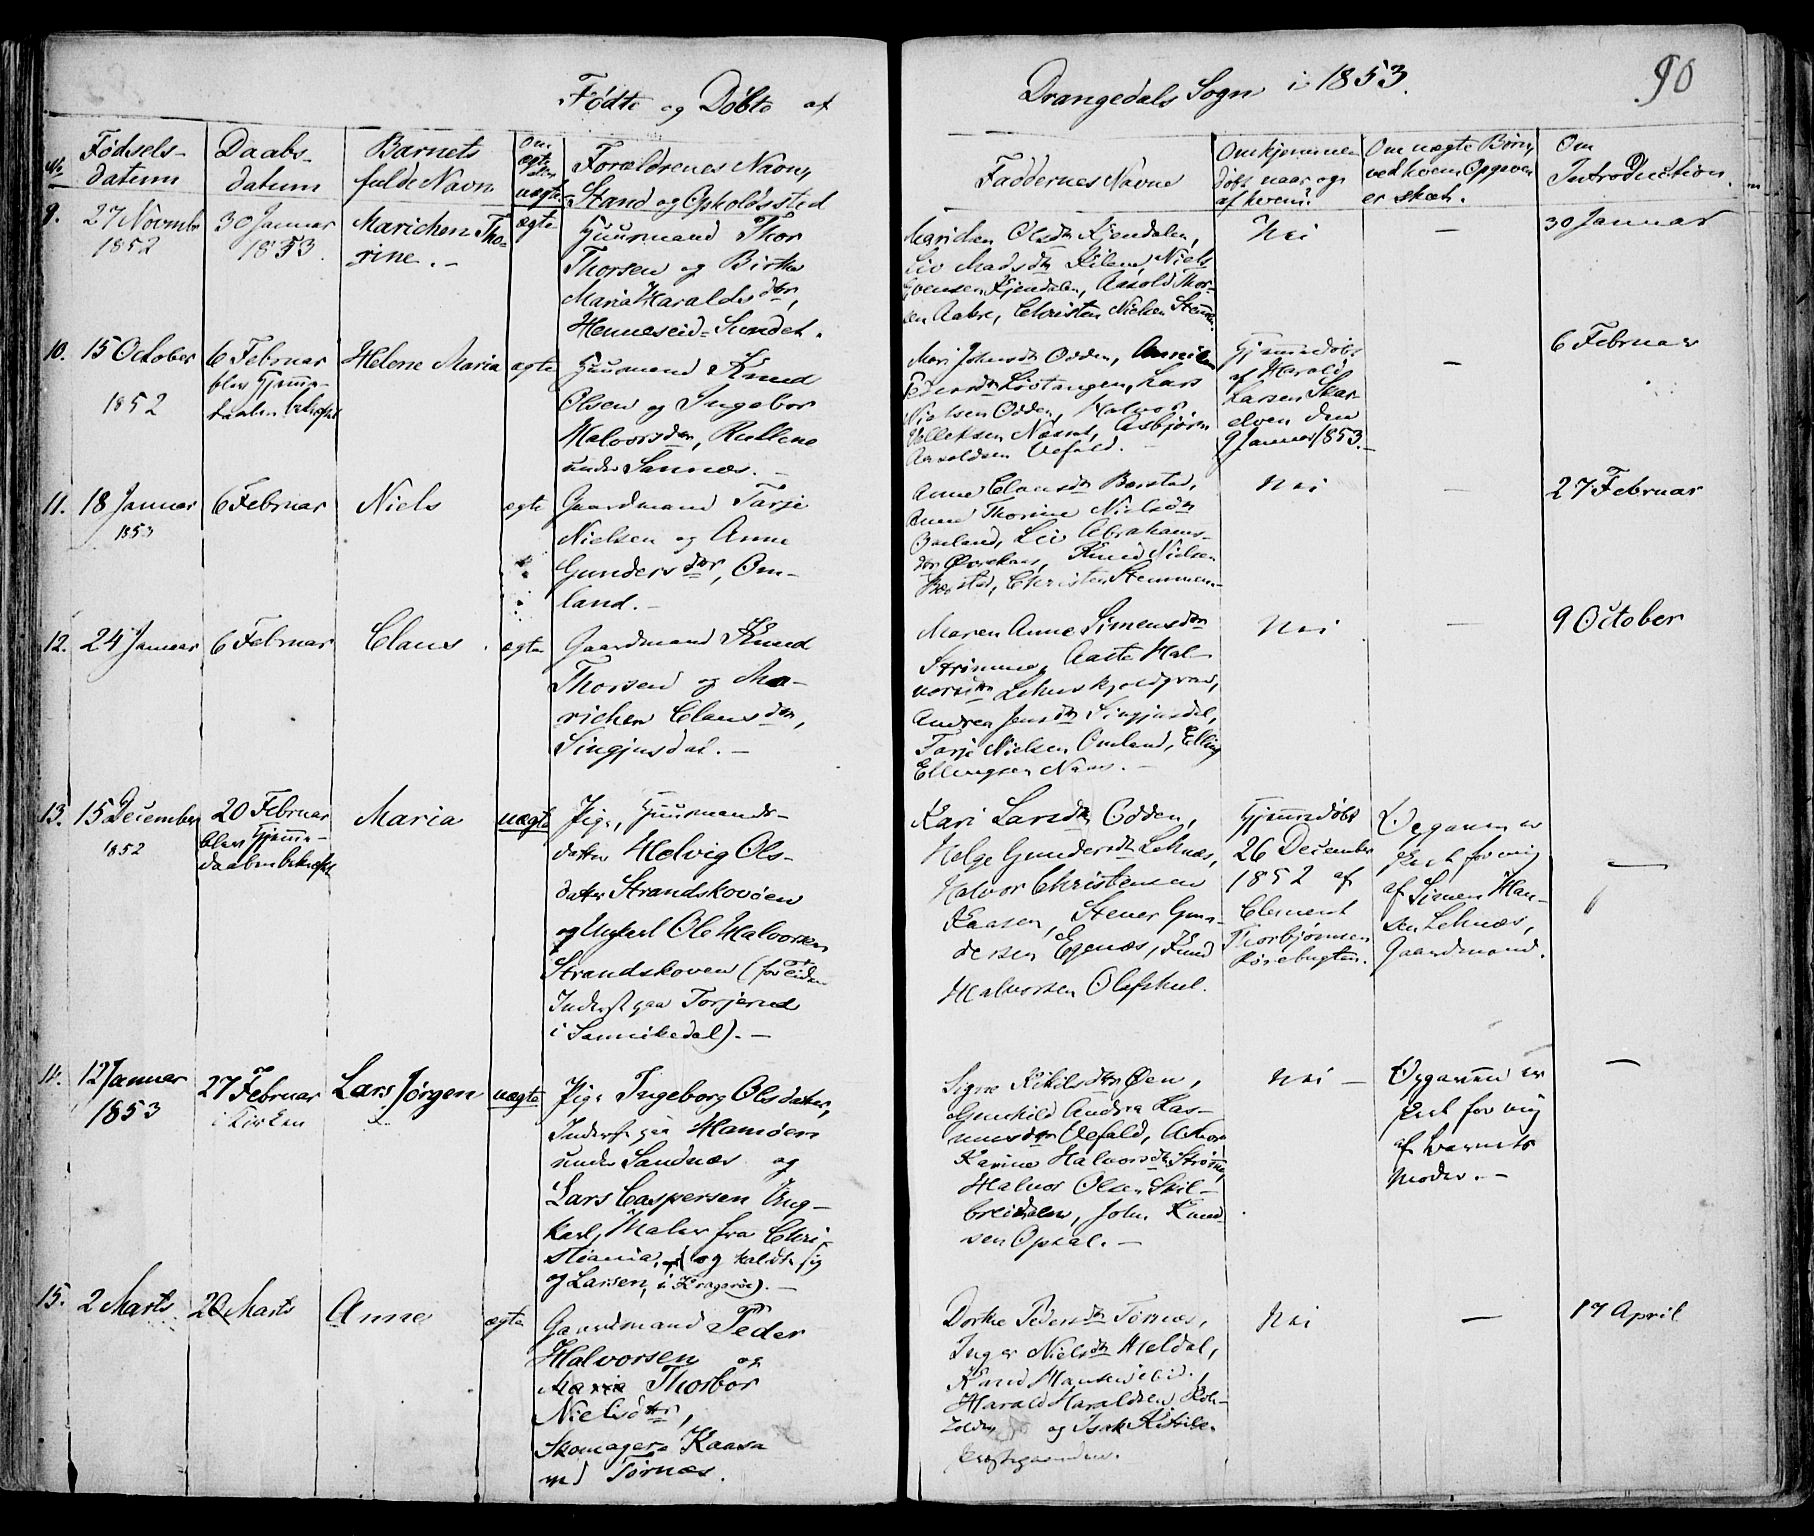 Fødte og Døbte af Drangedals Sogn i 1853. 90
No
Fødsels-
datum
Daabs-
datum
Barnets
fulde Navn
Om
ægte
eller
uægte
Forældrenes Navn,
Stand og Opholdssted
Faddernes Navne
Om hjemme
døbt, naar og
af hvem?
Om uægte Børn,
ved hvem Opgaven
er skeet.
Om
Introduction.
9.
27 Novembr
1852
30 Januar
1853.
Marichen Tho-
rine.-
ægte
Huusmand Thor
Thorsen og Birthe
Maria Haraldsdtr,
Henneseid-Sundet.
Marichen Olsdtr Kjendalen,
Liv Madsdtr Kilene, Niels
Evensen Kjendalen, Aasold Thor-
sen Aabre, Christen Nielsen
Nei
-
30 Januar
10.
15 October
1852
6 Februar
blev hjemme-
daaben bekræftet
Helene Maria
ægte
Huusmand Knud
Olsen og Ingebor
Halvorsdtr,
under Sannæs.-
Mari Johnsdtr Odden,
Lars
Nielsen Odden, Halvor
Asbjørn
Vefald.
Hjemmedøbt
af Harald
Larsen Skar-
elven den
9 Januar 1853.-
-
6 Februar
11.
18 Januar
1853
6 Februar
Niels
ægte
Gaardmand Tarje
Nielsen og Anne
Gundersdtr, Om-
land.-
Anne Clausdtr Barstad,
Anne Thorine Nielsdtr
Liv Abrahams-
dtr Knud Nielsen
Christen Stemmen-
Nei
-
27 Februar
12.
24 Januar
6 Februar
Claus
ægte
Gaardmand Knud
Thorsen og Ma-
richen Clausdtr,
Singjusdal.-
Maren Anne Simensdtr
Strømme, Aaste Hal-
vorsdtr
Andrea Jensdtr Singjusdal,
Tarje Nielsen Omland, Elling
Ellingsen Næs.-
Nei
-
9 October
13.
15 December
1852
20 Februar
blev hjemme-
daaben bekræftet
Maria
uægte
Pige, Huusmands-
datter Helvig Ols-
datter Strandskovøen
og Ungkarl Ole Halvorsen
Strandskoven (for Tiden
Inderst paa Torjerud
i Sannikedal).-
Kari Larsdtr Odden,
Helge Gundersdtr Lehnæs,
Halvor Christensen
Kaasen, Stener Gun-
dersen Egenæs, Knud
Halvorsen
Hjemmedøbt
26 December
1852 af
Clement
Thorbjørnsen
Opgaven er
skeet for mig
af Simen Han-
sen Lehnæs,
Gaardmand.
-
14.
12 Januar
1853
27 Februar
i Kirken
Lars Jørgen
uægte
Pige Ingeborg Olsdatter,
Inderst paa Hamøen
under Sandnæs og
Lars Caspersen Ung-
karl, Maler fra Chri-
stiania, (og kaldte sig
og Larsen, i Kragerøe).-
Signe Kittilsdtr Øen,
Gunhild Andrea Ras-
musdtr Vefald,
Karine Halvorsdtr
Halvor Olsen Skil-
breidalen, John Knud-
sen Opsal.-
Nei -
Opgaven er
skeet for mig
af barnets
Moder.-
-
15.
2 Marts
20 Marts
Anne
ægte
Gaardmand Peder
Halvorsen og
Maria Thorbor
Nielsdtr,
Skomager Kaasa
ved Tørnæs.
Dorthe Pedersdtr Tørnæs,
Inger Nielsdtr Heldal,
Harald Haraldsen
og Isak
Nei
-
17 April